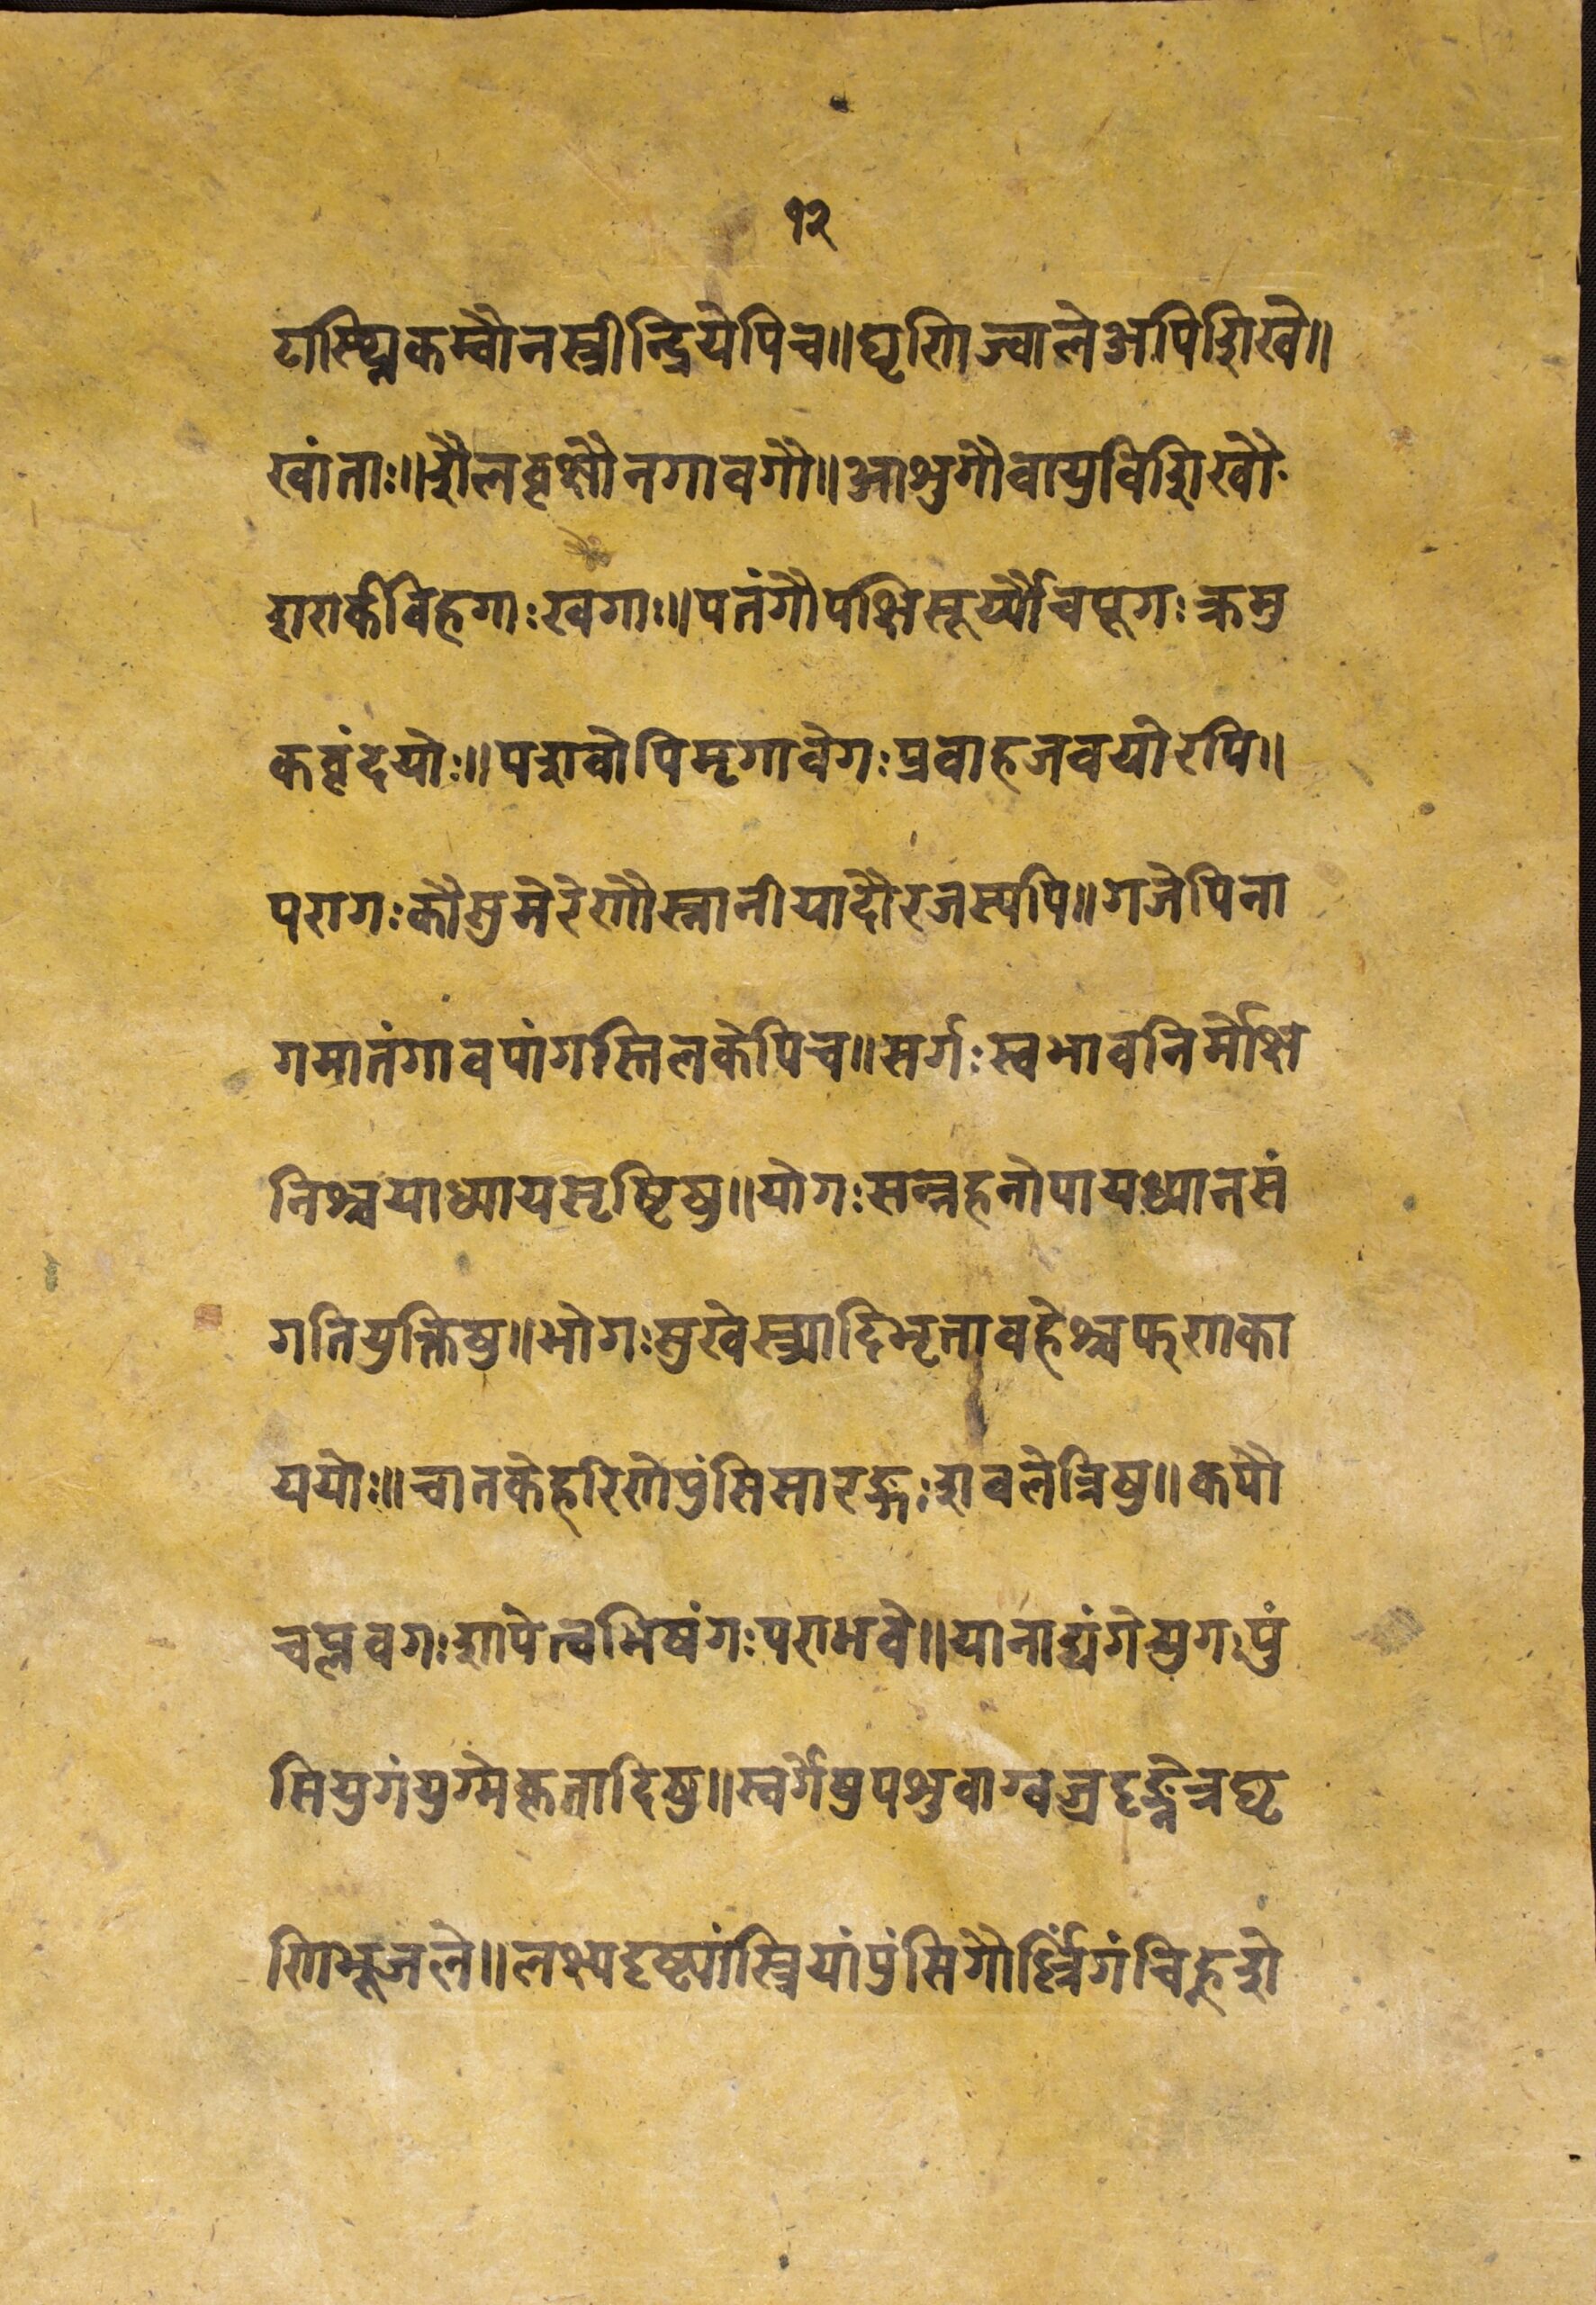 १२
टास्थ्निकम्बौनस्त्रीन्द्रियेपिच॥घृणिज्वालेअपिशिखे॥
खांताः॥शैलवृक्षौनगावगौ॥आशुगौवायुविशिखौ
शरार्कविहगाःखगाः॥पतंगौपक्षिसूर्य्यौचपूगःक्रमु
कवृंदयोः॥पशवोपिमृगावेगःप्रवाहजवयोरपि॥
परागःकौसुमेरेणौस्नानीयादौरजस्यपि॥गजेपिना
गमातंगावपांगस्तिलकेपिच॥सर्गःस्वभावनिर्मोक्ष
निश्चयाध्यायसृष्टिषु॥योगःसन्नहनोपायध्यानसं
गतियुक्तिषु॥भोगःसुखेस्त्र्यादिभृतावहेश्चफणाका
ययोः॥चातकेहरिणेपुंसिसारङ्गःशवलेत्रिषु॥कपौ
चप्लवगःशापेत्वभिषंगःपराभवे॥यानाद्यंगेयुगःपुं
सियुगंयुग्मेकृतादिषु॥स्वर्गेषुपशुवाग्वज्रदृङ्नेत्रघृ
णिभूजले॥लक्ष्यदृष्ट्यांस्त्रियांपुंसिगौर्ल्लिंगंचिह्नशे